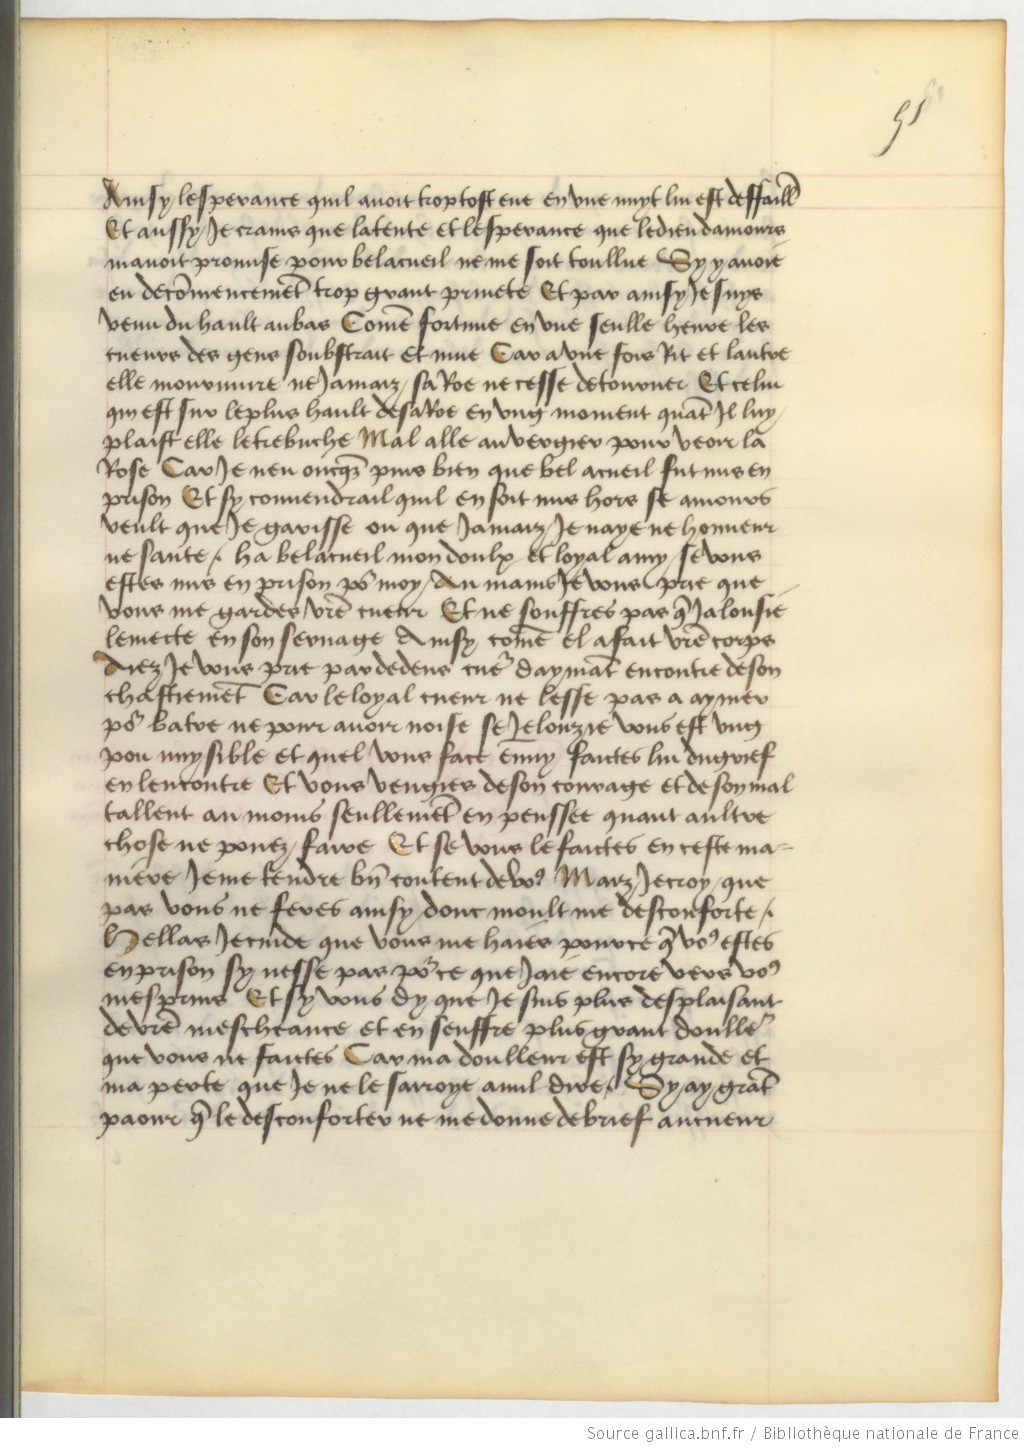 51
Ainsy lesperance quil auoit trop tost eue en vne nuyt lui est deffaill̃
Et aussy Je crains que latente et lesperance que le dieu damours
mauoit promise pour belacueil ne me soit toullue Sy y auoie
eu decõmencemẽt trop grant priuete Et par ainsy Je suys
venu du hault au bas Comẽ fortune en vne seulle heure les
cueurs des gens soubstrait et mue Car a vne fois Rit et lautre
elle mourmure ne Jamaiz sa Roe ne cesse de tourner Et celui
qui est sur le plus hault de sa Roe en vng moment quãt Il luy
plaist elle le trebuche Mal alle au vergier pour veoir la
Rose Car Je neu oncq̃s puis bien que bel acueil fut mis en
prison Et sy conuendrail quil en soit mis hors se amours
veult que Je garisse ou que Jamaiz Je naye ne honneur
ne sante / ha belacueil mon doulx et loyal amy se vous
estes mis en prison põ moy / Au mains Je vous prie que
vous me gardes vrẽ cueur Et ne souffres pas q̃ Jalousie
le mecte en son seruage Ainsy comẽ el a fait vrẽ corps
Aiez Je vous prie par dedens cueʳ daymãt encontre de son
chastiemẽt Car le loyal cueur ne lesse pas a aymer
põ batre ne pour auoir noise se Jelouzie vous est vng
pou nuysible et quel vous face ẽnuy faictes lui du grief
en lencontre Et vous vengies de son courage et de son mal
tallent au moins seullemẽt en penssee quant aultre
chose ne pouez faire Et se vous le faictes en ceste ma-
niere Je me tendre bñ content de voꝰ Maiz Je croy que
pas vous ne feres ainsy donc moult me desconforte /
Hellas Je cuide que vous me haies pource q̃ voꝰ estes
en prison sy nesse pas põ ce que Jaie encore vers voꝰ
mesprins Et sy vous dy que Je suis plus desplaisant
de vrẽ mescheance et en seuffre plus grant doulleʳ
que vous ne faictes Car ma doulleur est sy grande et
ma perte que Je ne le sarroye a nul dire / Sy ay grãt
paour q̃ le desconforter ne me donne de brief au cueur
Source gallica.bnf.fr / Bibliothèque nationale de France